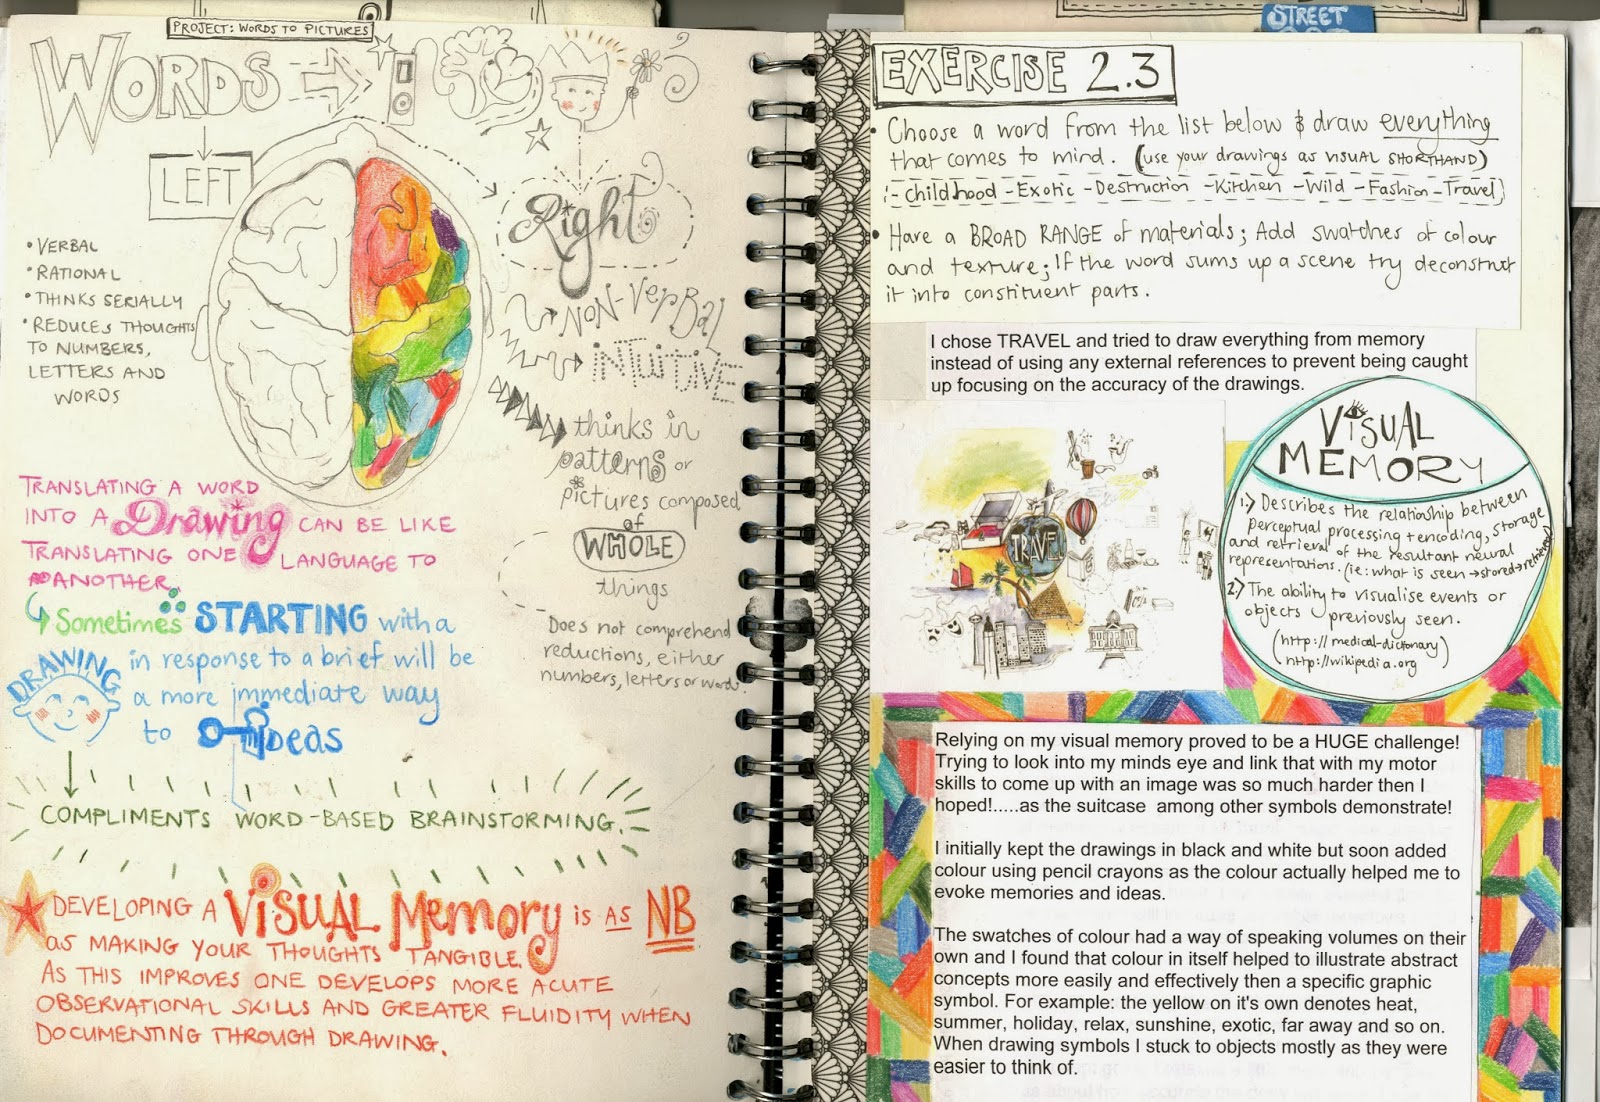 PROJECT: WORDS TO PICTURES
WORDS
LEFT
• VERBAL
• RATIONAL
• THINKS SERIALLY
• REDUCES THOUGHTS
TO NUMBERS,
LETTERS AND
WORDS
Right
NON-VERBAL
iNTUiTiVE
thinks in
patterns or
pictures composed
of
WHOLE
things
Does not comprehend
reductions, either
numbers, letters or words.
TRANSLATING A WORD
INTO A Drawing CAN BE LIKE
TRANSLATING ONE LANGUAGE TO
ANOTHER.
Sometimes STARTING with a
DRAWING
in response to a brief will be
a more immediate way
to ideas
COMPLIMENTS WORD-BASED BRAINSTORMING.
DEVELOPING A ViSUAL Memory is AS NB
as MAKING YOUR THOUGHTS TANGIBLE.
AS THIS IMPROVES ONE DEVELOPS MORE ACUTE
OBSERVATIONAL SKILLS AND GREATER FLUIDITY WHEN
DOCUMENTING THROUGH DRAWING.
STREET
EXERCISE 2.3
• Choose a word from the list below & draw everything
that comes to mind. (use your drawings as VISUAL SHORTHAND)
- childhood - Exotic - Destruction - Kitchen - Wild - Fashion - Travel
• Have a BROAD RANGE of materials; Add swatches of colour
and texture; If the word sums up a scene try deconstruct
it into constituent parts.
I chose TRAVEL and tried to draw everything from memory
instead of using any external references to prevent being caught
up focusing on the accuracy of the drawings.
TRAVEL
ViSUAL
MEMORY
1.) Describes the relationship between
perceptual processing + encoding, storage
and retrieval of the resultant neural
representations. (ie: what is seen → stored → retrieved)
2.) The ability to visualise events or
objects previously seen.
(http://medical-dictionary)
http://wikipedia.org
Relying on my visual memory proved to be a HUGE challenge!
Trying to look into my minds eye and link that with my motor
skills to come up with an image was so much harder then I
hoped!.....as the suitcase among other symbols demonstrate!
I initially kept the drawings in black and white but soon added
colour using pencil crayons as the colour actually helped me to
evoke memories and ideas.
The swatches of colour had a way of speaking volumes on their
own and I found that colour in itself helped to illustrate abstract
concepts more easily and effectively then a specific graphic
symbol. For example: the yellow on it's own denotes heat,
summer, holiday, relax, sunshine, exotic, far away and so on.
When drawing symbols I stuck to objects mostly as they were
easier to think of.